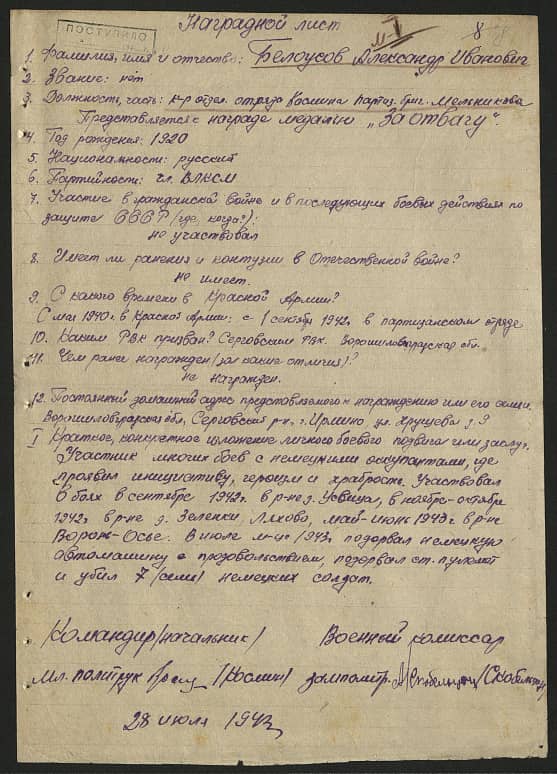 ПОСТУПИЛО
8
Наградной лист
1. Фамилия, имя и отчество: Белоусов Александр Иванович
2. Звание: нет
3. Должность, часть: к-р отдел. отряда Кослина партиз. бриг. Мельникова
Представляется к награде медалью „За отвагу"
4. Год рождения: 1920
5. Национальность: русский
6. Партийность: чл. ВЛКСМ
7. Участие в гражданской войне и в последующих боевых действиях по
защите СССР (где, когда?):
не участвовал
8. Имеет ли ранения и контузии в Отечественной войне?
Не имеет.
9. С какого времени в Красной Армии?
С мая 1940 г. в Красной Армии; с 1 сентября 1942 г. в партизанском отряде
10. Каким РВК призван? Серговским РВК. Ворошиловградская обл.
11. Чем ранее награжден (за какие отличия)?
не награжден.
12. Постоянный домашний адрес представляемого к награждению или его семьи.
Ворошиловградская обл, Серговский р-н, г. Ирмино ул. Хрущева д. 3
I Краткое, конкретное изложение личного боевого подвига или заслуг.
Участник многих боев с немецкими оккупантами, где
проявил инициативу, героизм и храбрость. Участвовал
в боях в сентябре 1942 г. в р-не д. Усвица, в ноябре-октябре
1942 г. в р-не д. Зеленки, Ляхово, май-июнь 1943 г. в р-не
Ворон-Осье. В июле м-це 1943 г. подорвал немецкую
автомашину с продовольствием, подорвал ст. пулемет
и убил 7 (семь) немецких солдат.
Командир /начальник/ Военный комиссар
Мл. политрук /Кослин/ зампомитр.
28 июля 1943